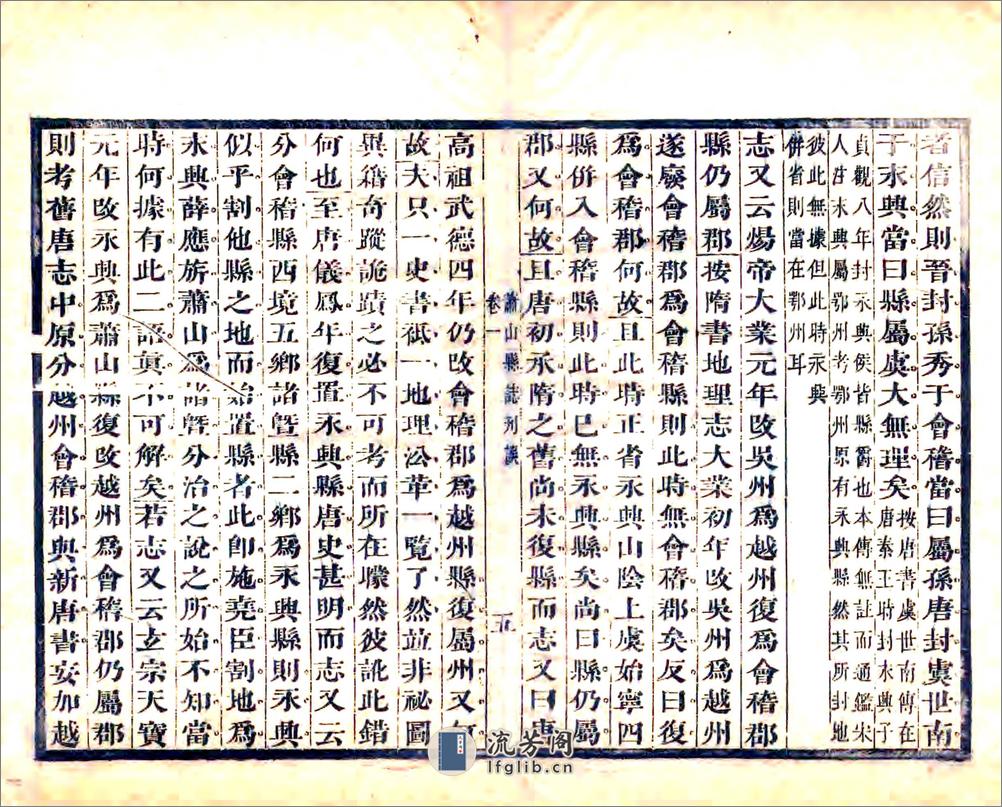 者信然則晉封孫秀于會稽當曰屬孫唐封虞世南
子永興當曰縣屬虞大無理矣按唐書虞世南傳在
貞觀八年封永興侯皆縣爵也本傳無註而通鑑宋
唐秦王時封永興子
人註永興屬鄂州考鄂州原有永興縣然其所封地
彼此無據但此時永興
併省則當在鄂州耳
志又云煬帝大業元年改吳州為越州復為會稽郡
縣仍屬郡按隋書地理志大業初年改吳州為越州
遂廢會稽郡為會稽縣則此時無會稽郡矣反曰復
為會稽郡何故且此時正省永興山陰上虞始寧四
縣併入會稽縣則此時已無永興縣矣尚曰縣仍屬
郡又何故且唐初承隋之舊尚未復縣而志又曰唐
蕭山縣誌刊誤
卷一
五
高祖武德四年仍改會稽郡為越州縣復屬州又何
故夫只一史書祗一地理沿革一覽了然並非祕圖
異籍奇蹤詭蹟之必不可考而所在懞然彼訛此錯
何也至唐儀鳳年復置永興縣唐史甚明而志又云
分會稽縣西境五鄉諸暨縣二鄉為永興縣則永興
似乎割他縣之地而始置縣者此卽施堯臣割地為
永興薛應旂蕭山為諸暨分治之說之所始不知當
時何據有此二語眞不可解矣若志又云玄宗天寶
元年改永興為蕭山縣復改越州為會稽郡仍屬郡
則考舊唐志中原分越州會稽郡與新唐書妄加越
流芳閣
lfglib.cn